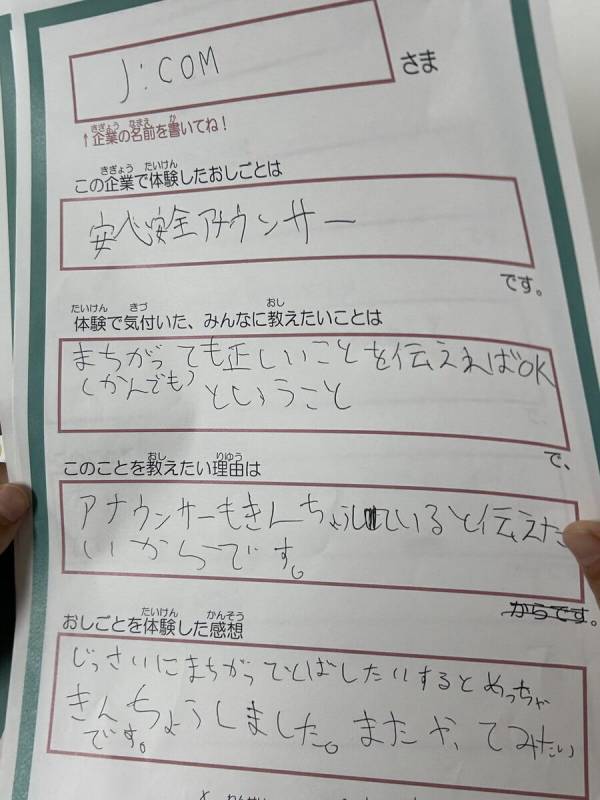 J:COM
さま
↑企業の名前を書いてね！
この企業で体験したおしごとは
安心安全アナウンサー
です。
体験で気付いた、みんなに教えたいことは
まちがっても正しいことを伝えればOK
(かんでも)
ということ
で、
このことを教えたい理由は
アナウンサーもきんちょうしていると伝えた
いからです。
からです。
おしごとを体験した感想
じっさいにまちがってとばしたりするとめっちゃ
きんちょうしました。またやってみたい
です。